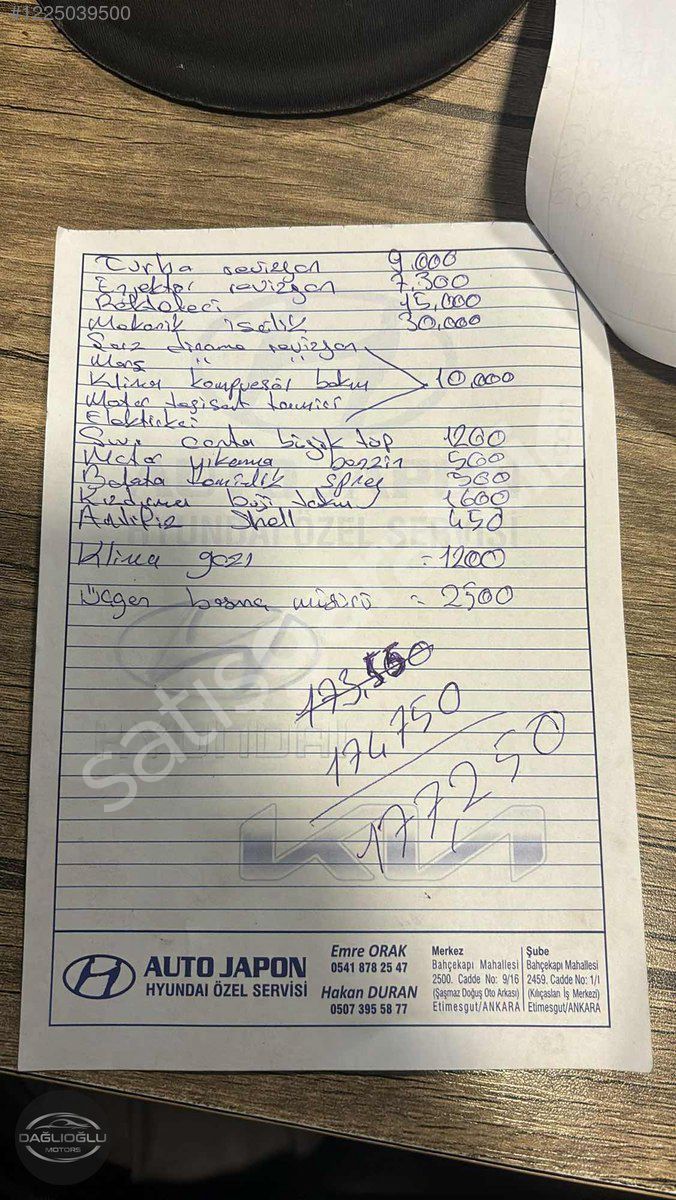 #1225039500
Turbo revizyon 9.000
Enjektör revizyon 7.300
15,000
Mekanik isçilik 30,000
Sarz dinamo revizyon
Mars " "
Klima kompresör bakım 10,000
Motor tesisat tamiri
Elektirikci
conta büyük top 1200
Motor yıkama benzin 500
Balata temizlik sprey 500
Kızdırma buji takım 1600
Antifiriz Shell 450
Klima gazı = 1200
basma = 2500
173,550
174750
177,250
satış
HYUNDAI ÖZEL SERVİSİ
HYUNDAI
KIA
AUTO JAPON
HYUNDAI ÖZEL SERVİSİ
Emre ORAK
0541 878 25 47
Hakan DURAN
0507 395 58 77
Merkez
Bahçekapı Mahallesi
2500. Cadde No: 9/16
(Şaşmaz Doğuş Oto Arkası)
Etimesgut/ANKARA
Şube
Bahçekapı Mahallesi
2459. Cadde No: 1/I
(Kılıçaslan İş Merkezi)
Etimesgut/ANKARA
DAĞLIOĞLU
MOTORS